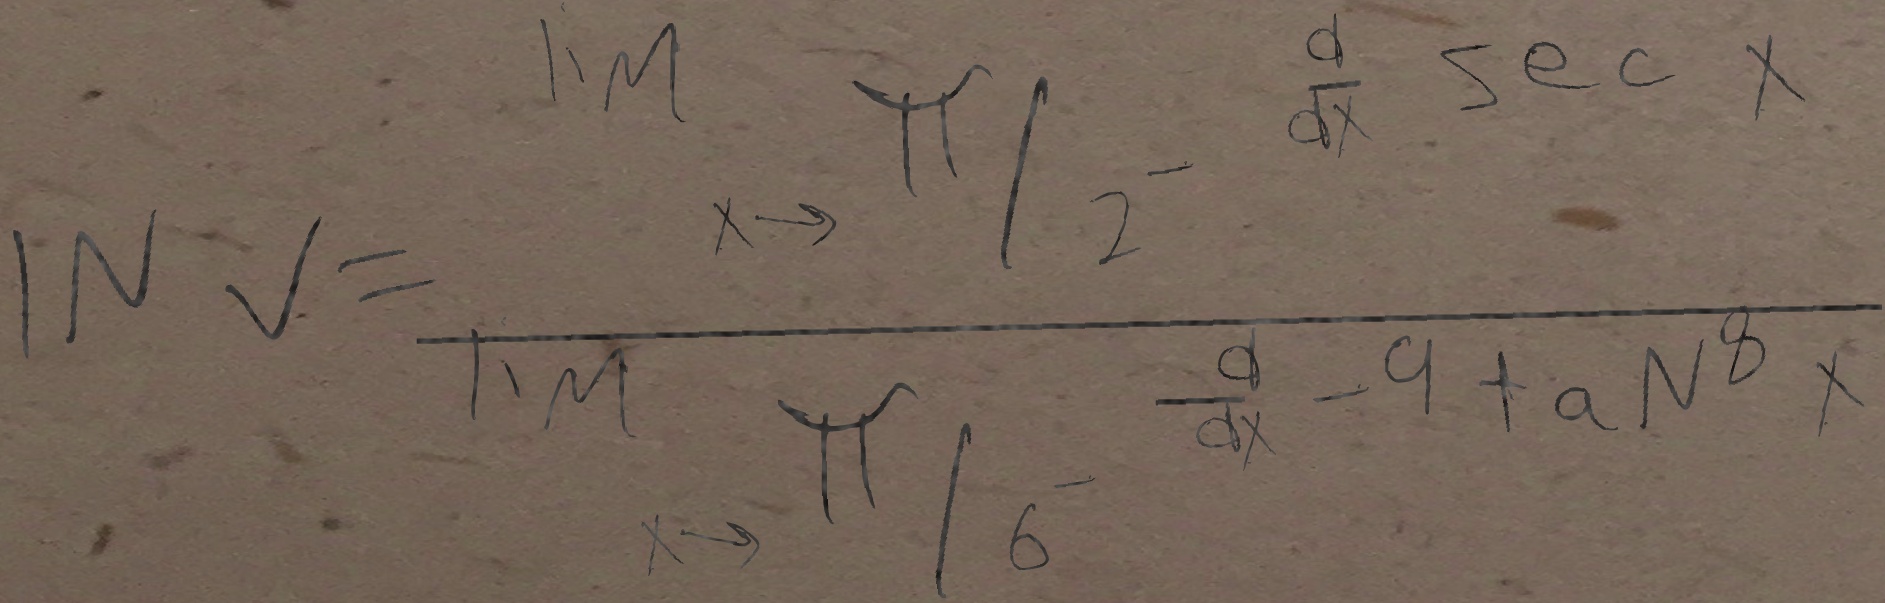 lim x→π/2⁻ d/dx sec x
IN V=
lim x→π/6⁻ d/dx -9 tan⁸ x